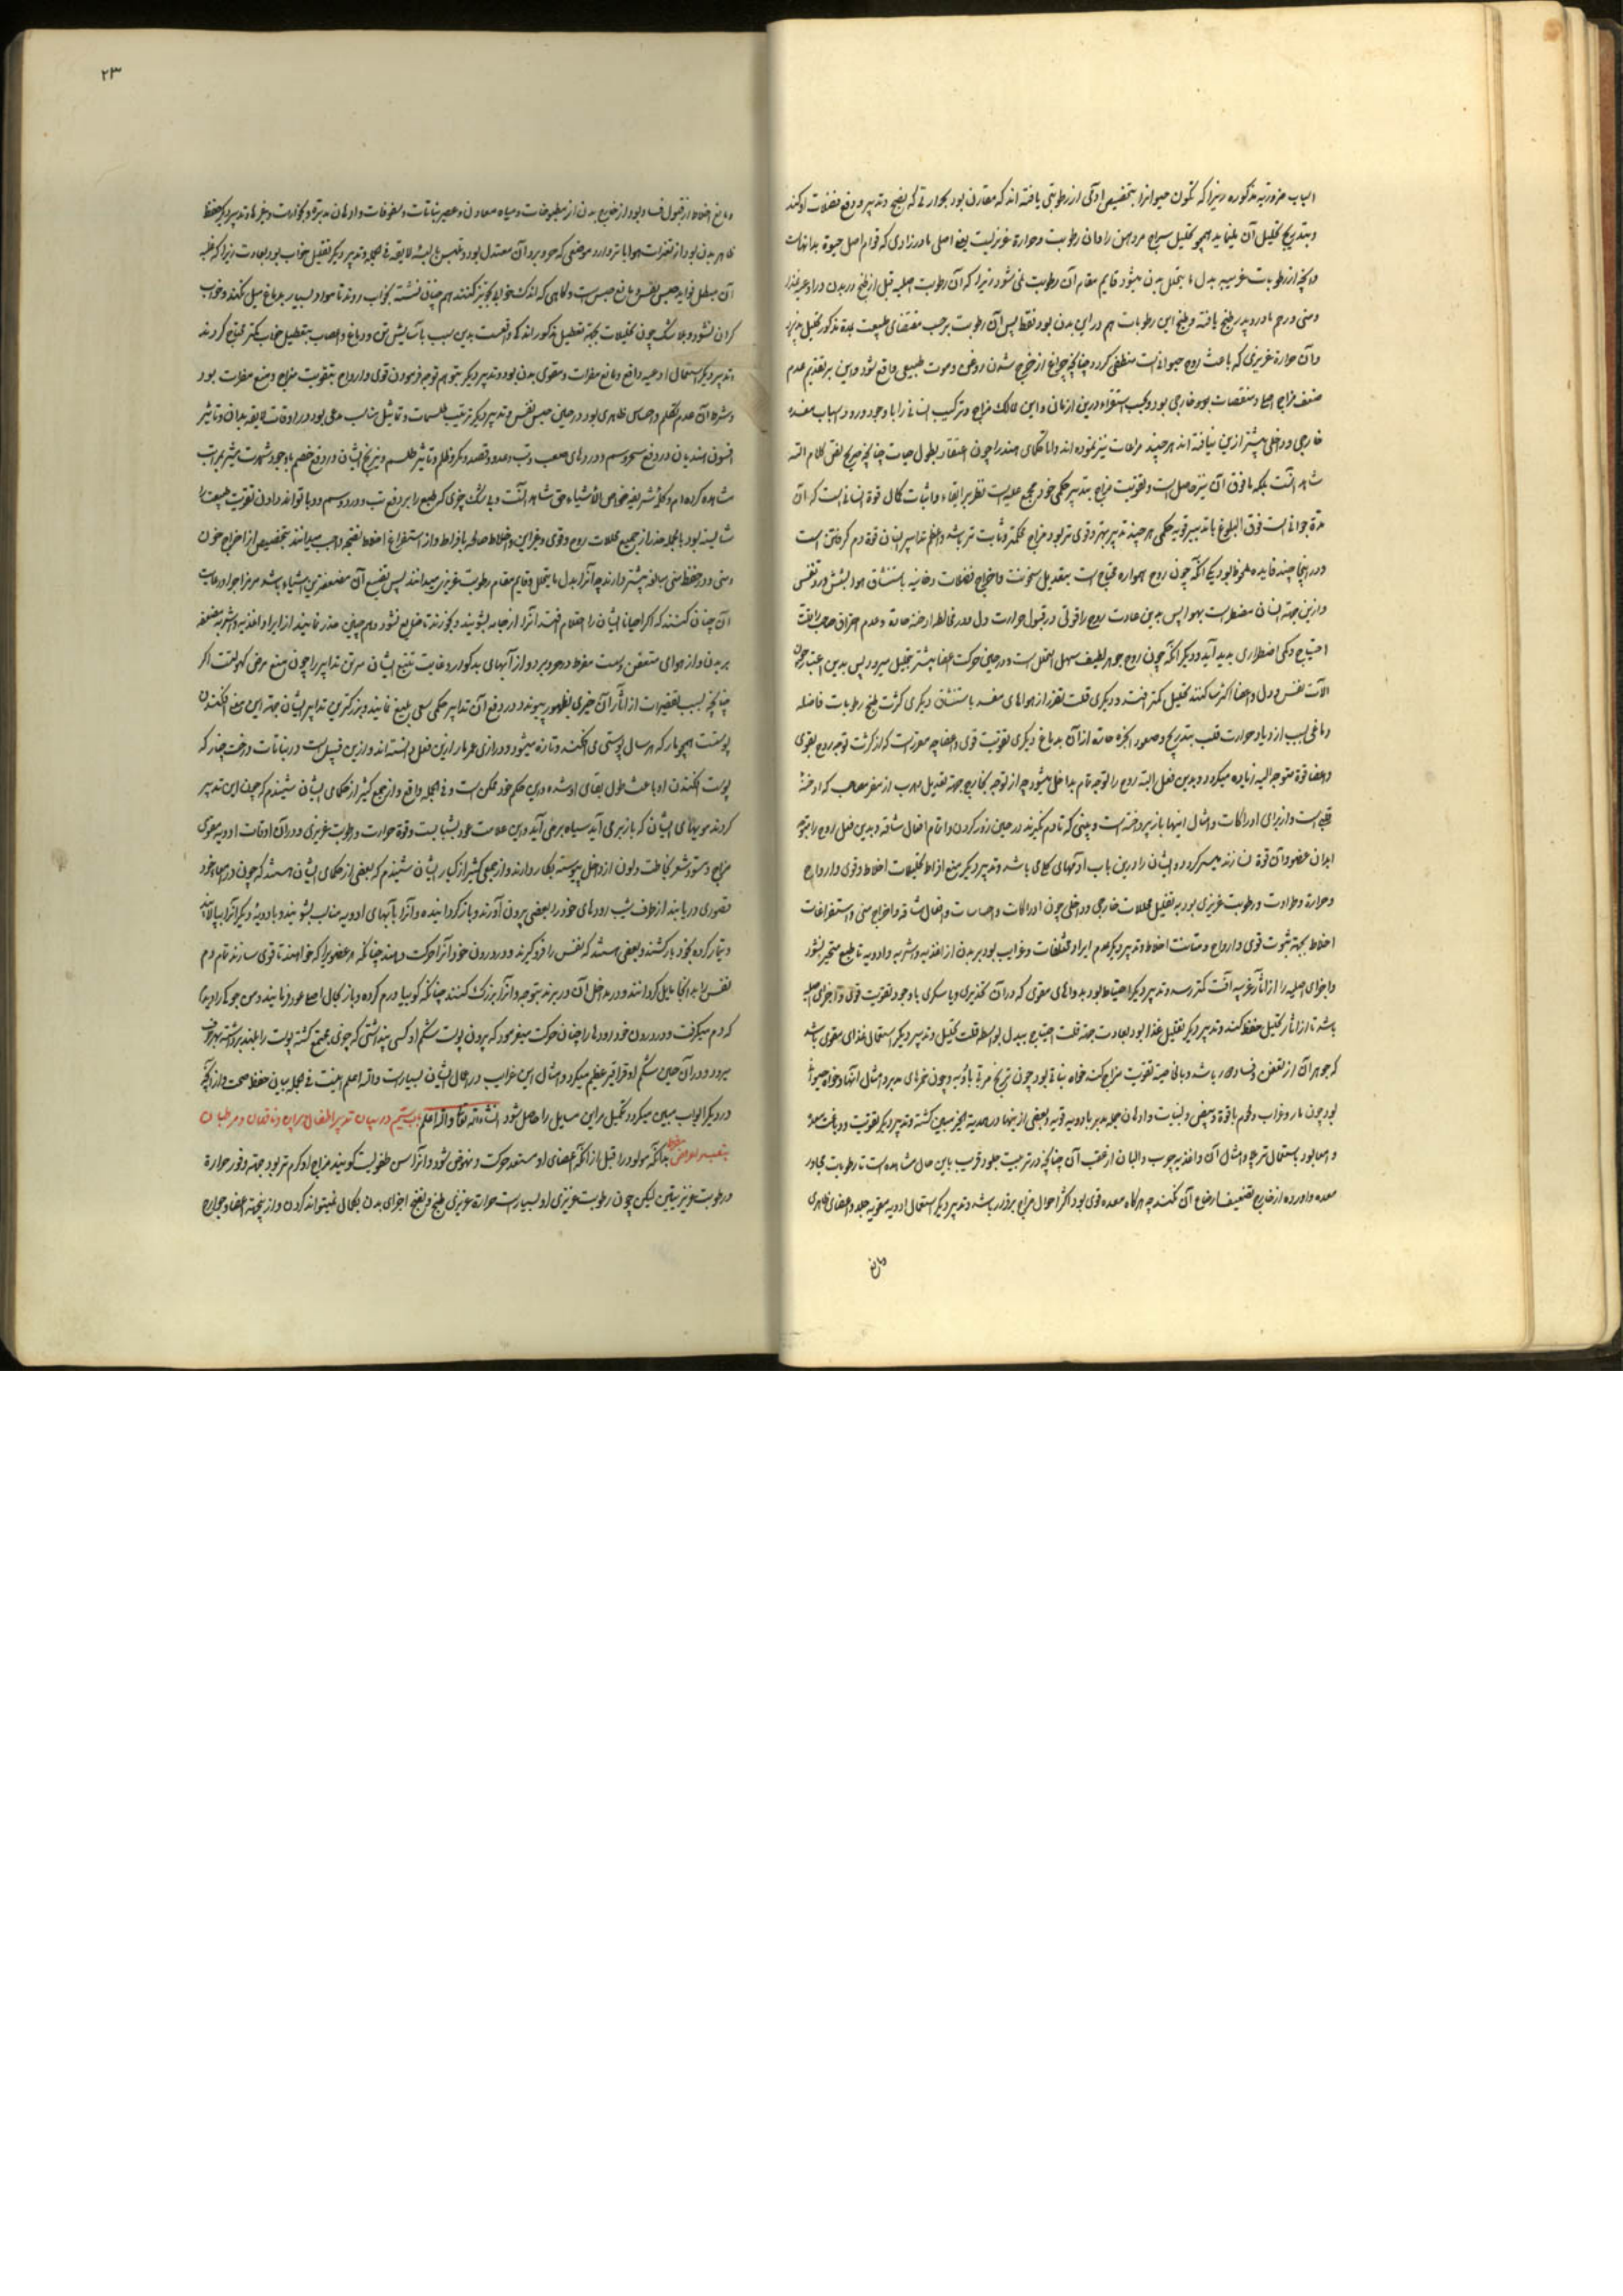 اسباب ضرورتیه مذکوره زیرا که تکون حیوانرا بتخصیص آدمی از رطوبتی یافته اند که مقارن بود بحرارتی که بنضج وتدبیر ودفع فضلات او کند
وبتدریج تحلیل آن نماید همچو تحلیل سراج مر دهن را وآن رطوبت وحرارة غریزیست یعنی اصلی مادرزادی که قوام اصل حیوة بدانهاست
وآنچه از رطوبات غریبه بدل ما یتحلل بدن میشود قایم مقام آن رطوبت نمی شود زیرا که آن رطوبت اصلیه قبل از طبخ در بدن در اوعیه غذا
ومنی ورحم مادر وپدر طبخ یافته وطبخ این رطوبات هم در این بدن بود فقط پس آن رطوبت بر حسب مقتضای طبیعت بمدة مذکور تحلیل پذیرد
وآن حرارة غریزی که باعث روح حیوانیست منطفی کردد چنانچه چراغ از خرج شدن روغن وموت طبیعی واقع شود واین بر تقدیر عدم
ضعف مزاج اصلی ومنقصات بدنی وخارجی بود وبحسب استقراء درین ازمان واین ممالک مزاج وترکیب انسانی را با وجود ورود اسباب مفسده
خارجی وداخلی بیشتر ازین نیافته اند هر چند مراعات نیز نموده اند واما حکمای هند را چون اعتقاد بطول حیات چنانچه صریح نص کلام الله
شاهد آنست بلکه مافوق آن نیز حاصل است وتقویت مزاج بتدبیر حکمی خود مجمع علیه است نظر بر ابقاء واثبات کمال قوة انسانی است که آن
مدة جوانی است فوق البلوغ با تدبیر قویه حکمی هر چند تدبیر بهتر وقوی تر بود مزاج محکمتر وثابت تر باشد واعظم تدابیر ایشان قوة دم کرفتن است
ودر اینجا چند فایده ملحوظ بود یکی آنکه چون روح همواره محتاج است بتعدیل سخونت واخراج فضلات دخانیه باستنشاق هوا بشش ورد تنفس
وازین جهت انسان مضطر است بهوا پس بدین عادت روح را قوتی در قبول حرارت دل ودر مخالطه ادخنه حاده وعدم احتراق حاصل یافت
احتیاج دمی اضطراری پدید آید ودیکر آنکه چون روح جوهر لطیف سهل التحلل است ودر حین حرکت اعضا بیشتر بتحلیل میرود پس بدین اعتبار چون
آلات نفس ودل واعضا اکثر ساکنند تحلیل کمتر افتد ودیکری قلت تضرر از هواهای مفسد باستنشاق دیکری کثرت طبخ رطوبات فاضله
دماغی بسبب ازدیاد حرارت قلب بتدریج وصعود ابخره حاده از آن بدماغ دیکری تقویت قوی واعضا چه مقرر است که از کثرت توجه روح بقوی
واعضا قوة متوجه الیه زیاده میکردد وبدین فعل البته روح را توجه تام بداخل میشود چه از توجه بخارج بجهت تعدیل مهرب از مضر مصاحب که ادخنهٔ
قلبی است واز برای ادراکات وامثال اینها باز پرداخته است وبینی که تا دم نکیرند در حین زور کردن واتمام افعال شاقه وبدین فعل روح را بتوجه
ابدان عضو وآن قوة نسازند میسر نکردد وایشان را درین باب ادعیهای کلامی باشد وتدبیر دیکر منع افراط تحلیلات اخلاط وقوی وارواح
وحرارة وطراوت ورطوبت غریزی بود به تقلیل محللات خارجی وداخلی چون ادراکات واحساسات وافعال شاقه واخراج منی واستفراغات
اخلاط بجهت ثبوت قوی وارواح ومتانت اخلاط وتدبیر دیکر عدم ایراد مختلفات وغرایب بود بر بدن از اغذیه واشربه وادویه تا طبع متحیر نشود
واجزای اصلیه را از آثار غریبه آفت کمتر رسد وتدبیر دیکر احتیاط بود بدواهای مقوی که در آن تخدیری ویا سکری با وجود تقویت قوی واجزای اصلیه
باشد تا از آثار تحلیل حفظ کند وتدبیر دیکر تقلیل غذا بود بعادت بجهت قلت احتیاج ببدل بواسطه قلت تحلیل وتدبیر دیکر استعمال غذای مقوی باشد
که جوهر آن از تعفن وفساد دور باشد وبالخاصیة تقویت مزاج کند خواه نباتی بود چون زنج مربی بادویه وچون خمرهای مدبر وامثال آنها وخواه حیوانی
بود چون مار وغراب ولحوم باقوة وبیض ولبنیات وادهان جمله مدبر بادویه قویه وبعضی از اینها در صدیه ابخر مبین کشته وتدبیر دیکر تقویت ودباغت معده
وامعا بود باستعمال تربچه وامثال آن واغذیه چرب والبان از عقب آن چنانچه در تربیت جلود قریب باین حال مشاهد است تا رطوبات مجاور
معده وارده از خارج تضعیف اوضاع آن نکند چه هرکاه معده قوی بود اکثر احوال مزاج برقرار باشد وتدبیر دیکر استعمال ادویه مقویه جلد واعضای ظاهری
ومانع
۲۳
ومانع اخلاط از قبول فساد بود از خارج بدن از مطبوخات ومیاه معادن وعصیر نباتات وسفوفات وادهان مدبره وبخورات وغیرها وتدبیر دیکر حفظ
ظاهر بدن بود از تغیرات هوا با ترو وارد موضعی که حر وبرد آن معتدل بود وبملبس بالبسه لایقه فی الجمله وتدبیر دیکر تقلیل خواب بود بعادت زیرا که غلبه
آن مبطل فواید حبس نفس ومانع حبس است وکاهی که اندک خوابی تجویز کنند هم چنان نشسته بخواب روند تا مواد بسیار بدماغ میل نکند وخواب
کران نشود وبلا شک چون تحلیلات بجهت تعطیل مذکور اندکی واقعست بدین سبب بآسایش تن ودماغ واعصاب بتعطیل خواب کمتر محتاج کردند
وتدبیر دیکر استعمال ادعیه دافع ومانع مضرات ومقوی بدن بود وتدبیر دیکر بتوهم توجه فرمودن قوی وارواح بتقویت مزاج ومنع مضرات بود
وشره آن عدم تکلم وحواس ظاهری بود در حین حبس نفس وتدبیر دیکر ترتیب طلسمات وتماثیل مناسب مدعی بود در اوقات لایقه بدان وتاثیر
افسون هندیان در دفع سحر وسم ودردهای صعب وتب وصد وقصد ومکر وظلم وتاثیر طلسم ونیرنج ایشان در دفع خصم با وجود شهرت بیشتر بمراتب
مشاهده کرده ام وکلمهٔ شریفه خواص الاشیاء حق شاهد آنست وبی شک چیزی که طبع را بر دفع تب ودرد وسم ووبا تواند دادن تقویت طبیعت را
شایسته بود بالجمله حذر از جمیع محللات روح وقوی وغیر این واخلاط صالحه بافراط واز استفراغ اخلاط نضیجه واجب میدانند بتخصیص از اخراج خون
ومنی ودر حفظ منی مبالغه بیشتر دارند چه آنرا بدل ما یتحلل وقایم مقام رطوبت غریزی میدانند پس تضییع آن مضعف‌ترین اشیاء باشد مر مزاجرا ورعایت
آن چنان کنند که اکر احیانا ایشان را احتلام افتد آنرا از جامه بشویند وبخورند تا ضایع نشود وهم چنین حذر نمایند از ایراد اغذیه واشربه مضعفه
بر بدن واز هوای متعفن وست مفرط در حر وبرد واز آبهای بد کوار وغایت نتیجهٔ ایشان مرین تدابیر را چون منع مرض کهولتست اکر
چنانچه بسبب تقصیرات از آثار آن چیزی بظهور پیوندد در دفع آن تدابیر حکمی سعی بلیغ نمایند وبزرکترین تدابیر ایشان بجهت این معنی افکندن
پوستست همچو مار که هر سال پوستی می افکند وتازه میشود ودرازی عمر مار ازین فعل دانسته اند وازین قبیل است در نباتات درخت چنار که
پوست افکندن او باعث طول بقای او شده ودرین حکم خود ممکن است وفی الجمله واقع واز جمع کثیر از حکمای ایشان شنیدم که چون این تدبیر
کردند مویهای ایشان که باز بر می آید سیاه بر می آید واین علامت عود بشبابیت وقوة حرارت ورطوبت غریزی ودر آن اوقات ادویه مقوی
مزاج ومسود شعر بخاصیت ولون از داخل پیوسته بکار دارند واز جمعی کثیر از کبار ایشان شنیدم که بعضی از حکمای ایشان هستند که چون در امعاء خود
قصوری دریابند از طرف شیب رودهای خود را بعضی بیرون آورند وباز کردانیده وآنرا بآبهای ادویه مناسب بشویند وبادویهٔ دیکر آنرا بیالایند
وتیمار کرده بخود باز کشند وبعضی هستند که نفس را فرو کیرند ودر درون خود آنرا حرکت دهند چنانکه هر عضویرا که خواهند تا قوی سازند تمام دم
نفس را به آنجا مایل کردانند ودر مداخل آن در برند بتوجه وآنرا بزرک کنند چنانکه کوییا ورم کرده وباز بحال اصلی عود فرمایند ومن جوکی را دیدم
که دم میکرفت ودر درون خود رودها را چنان حرکت میفرمود که بیرون پوست شکم او کسی پنداشتی که چیزی مجتمع کشته پوست را بلند برداشته بهر طرف
میرود ودر آن حین شکم او قراقر عظیم میکرد وامثال این غرایب در احوال ایشان بسیار است والله اعلم اینست فی الجمله بیان حفظ صحت واز آنچه
در دیکر ابواب مبین میکردد تکمیل مر این مسایل را حاصل شود انشاءالله تعالی والله اعلم باب بیستم در بیان تدبیر اطفال وپیران وناقهان ومرطبان
بتعبیه امراض بدانکه مولود را قبل از آنکه اعضای او مستعد حرکت ونهوض شود وآنرا سن طفولیت کویند مزاج او کرم تر بود بجهت وفور حرارة
ورطوبت غریزیتین لیکن چون رطوبت غریزی او بسیار است حرارة غریزی طبخ ونضج اجزای بدن بکمال نمیتواند کردن واز اینجهت اعضا وجوارح